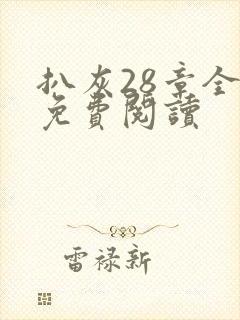 扒灰28章全
免費閱讀
雷禄新